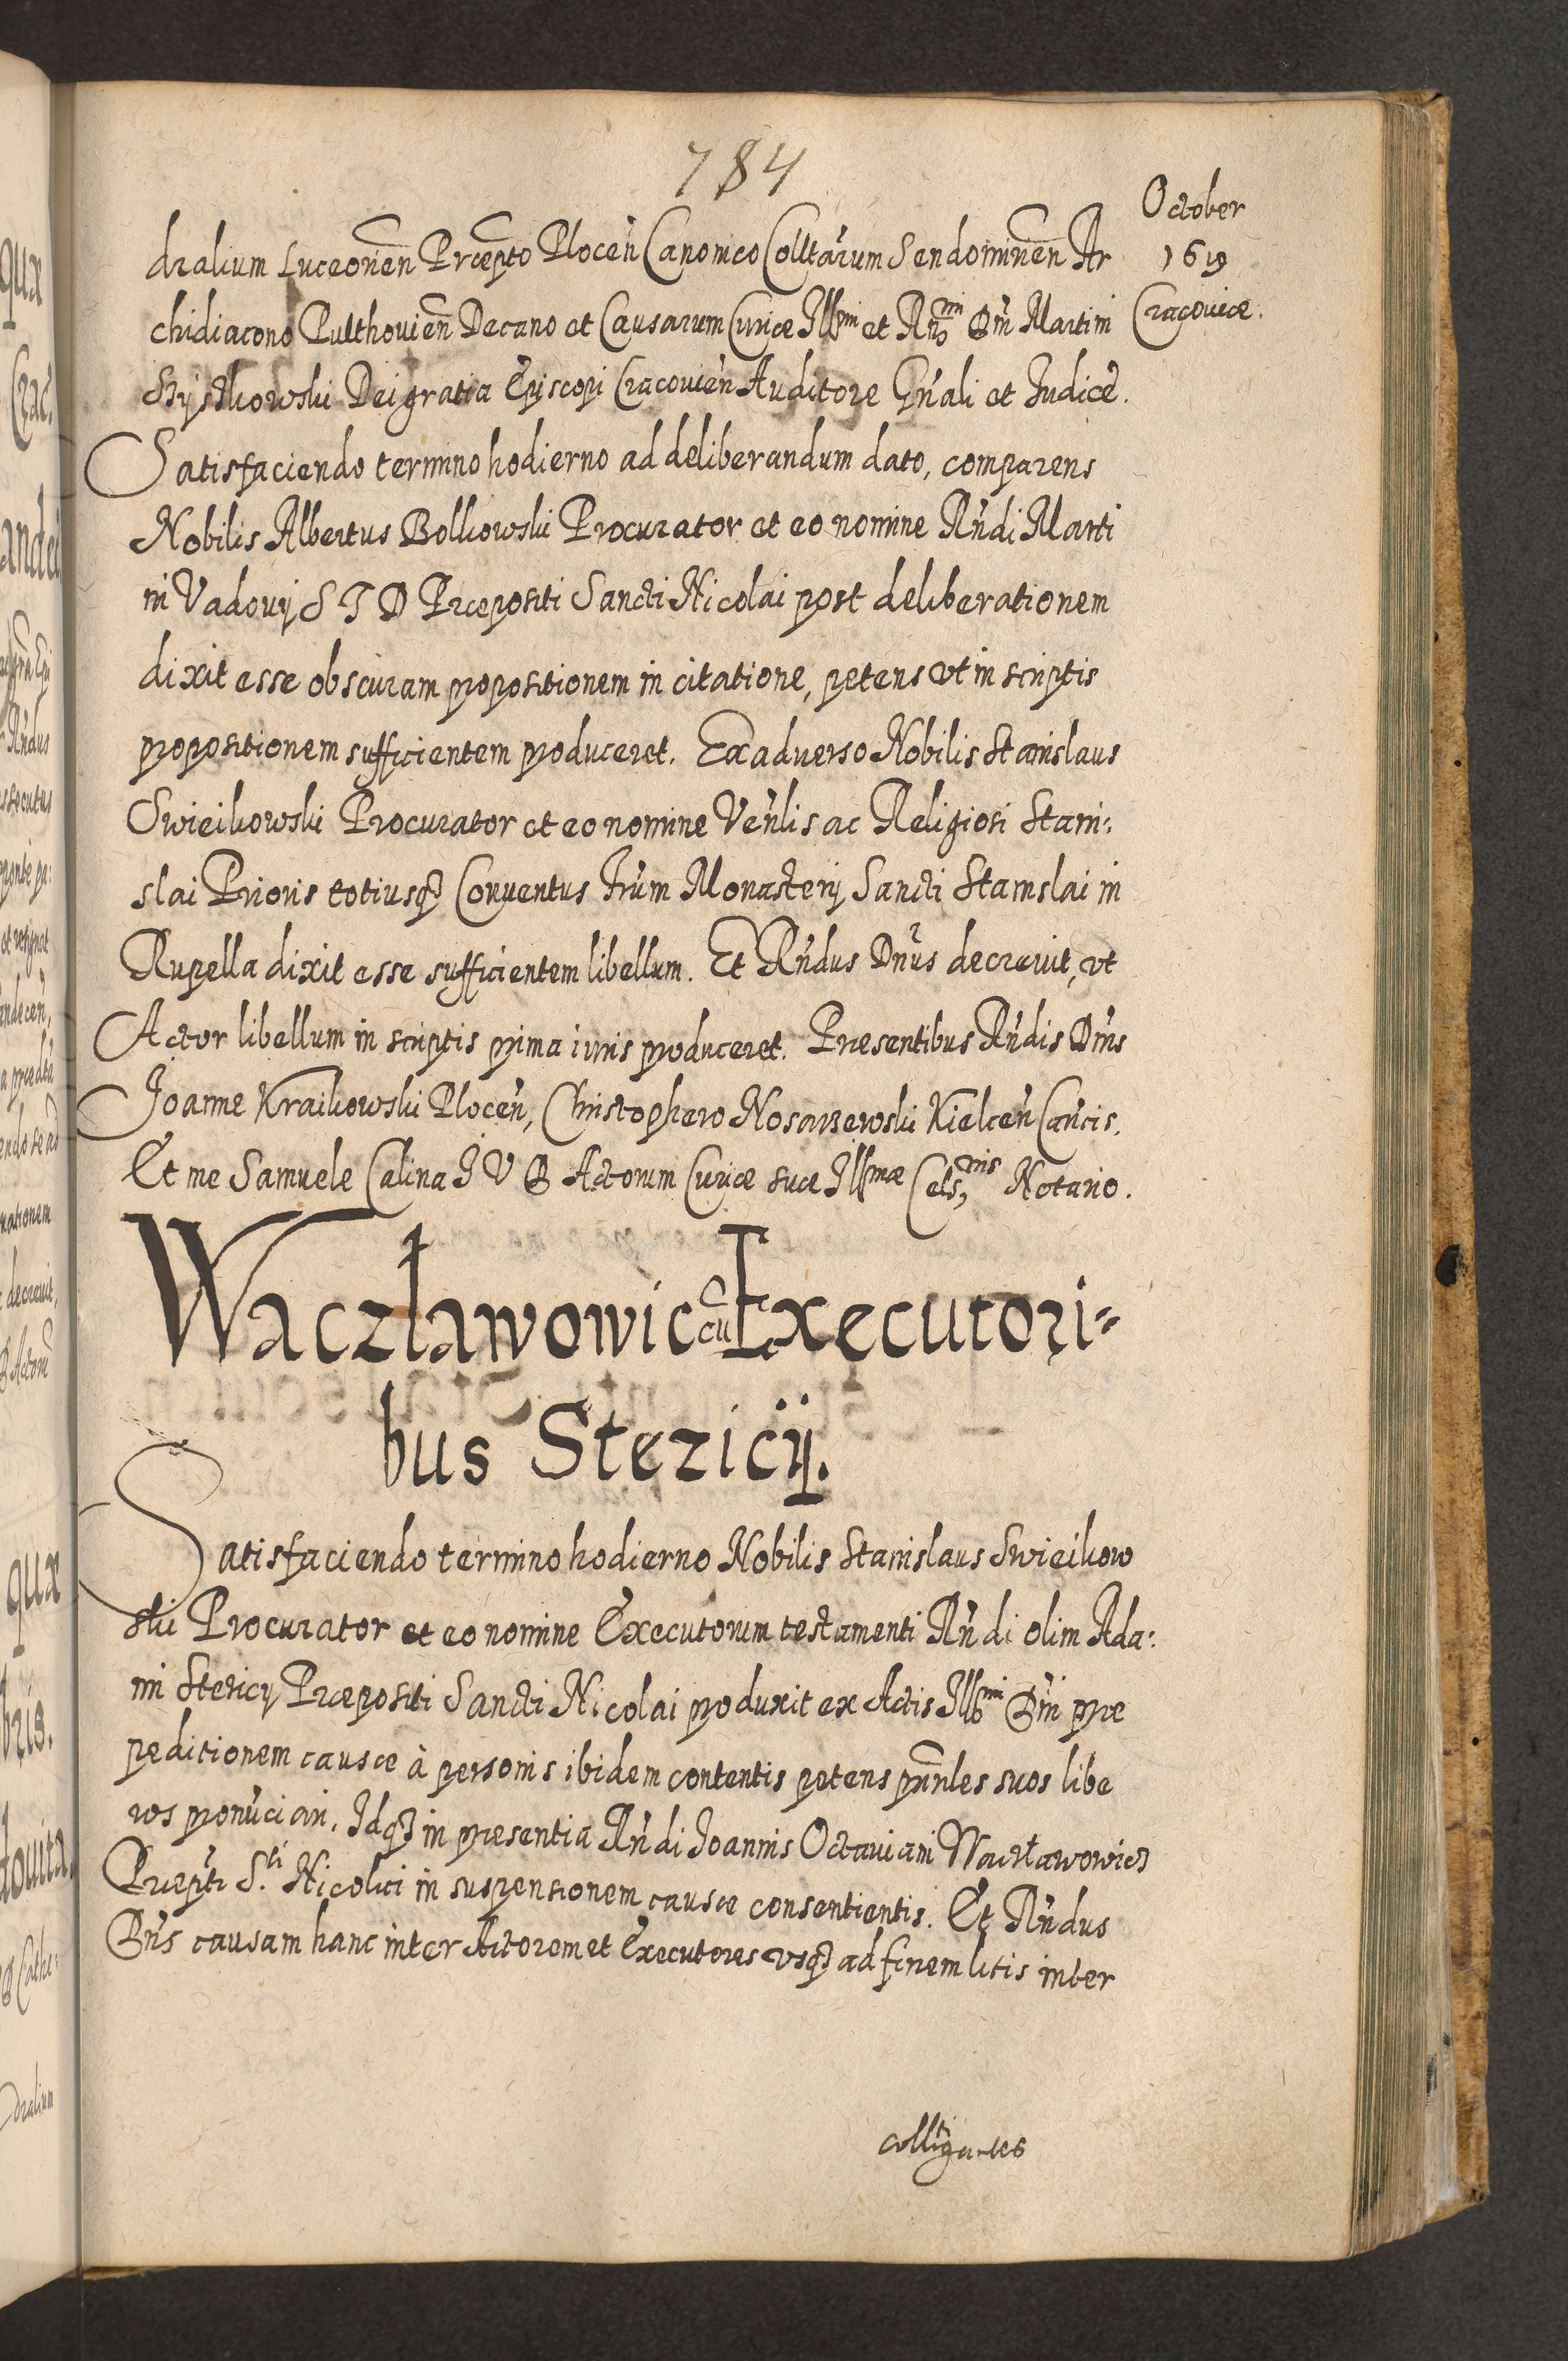 784
October
1619
Cracoviæ.
dralium Luceoneñ Præpto Ploceñ Canonico Colltarum Sendomineñ Ar
chidiacono Pulthovieñ Decano et Causarum Curiæ Illmi et Rñmi Dñi Martini
Szyszkowski Dei gratia Episcopi Cracovieñ Auditore Gñali et Iudice.
Satisfaciendo termino hodierno ad deliberandum dato, comparens
Nobilis Albertus Bolkowski Procurator et eo nomine Rñdi Marti
ni Vadovij S T D Præpositi Sancti Nicolai post deliberationem
dixit esse obscuram propositionem in citatione, petens vt in scriptis
propositionem sufficientem produceret. Ex adverso Nobilis Stanislaus
Swieikowski Procurator et eo nomine Veñlis ac Religiosi Stani:
slai Prioris totiusq; Conventus frum Monasterij Sancti Stanislai in
Rupella dixit esse sufficientem libellum. Et Rñdus Dñus decrevit, vt
Actor libellum in scriptis prima iuris produceret. Præsentibus Rñdis Dñis
Joanne Kraikowski Ploceñ, Christophero Nosarzewski Kielceñ Cañcis.
Et me Samuele Calina I V D Actorum Curiæ suæ Illmæ Cels,nis Notario.
Waczławowic cũ Executori-
bus Stericij.
Satisfaciendo termino hodierno Nobilis Stanislaus Swieikow
ski Procurator et eo nomine Executorum testamenti Rñdi olim Ada:
mi Stericy Præpositi Sancti Nicolai produxit ex Actis Illmi Dñi præ
peditionem causæ à personis ibidem contentis petens prinñles suos libe
ros pronũciari. Idq; in præsentia Rñdi Joannis Octaviani Wacławowicz
Præpti S.ti Nicolai in suspensionem causæ consentientis. Et Rñdus
Dñs causam hanc inter Actorem et Executores vsq; ad finem litis inter